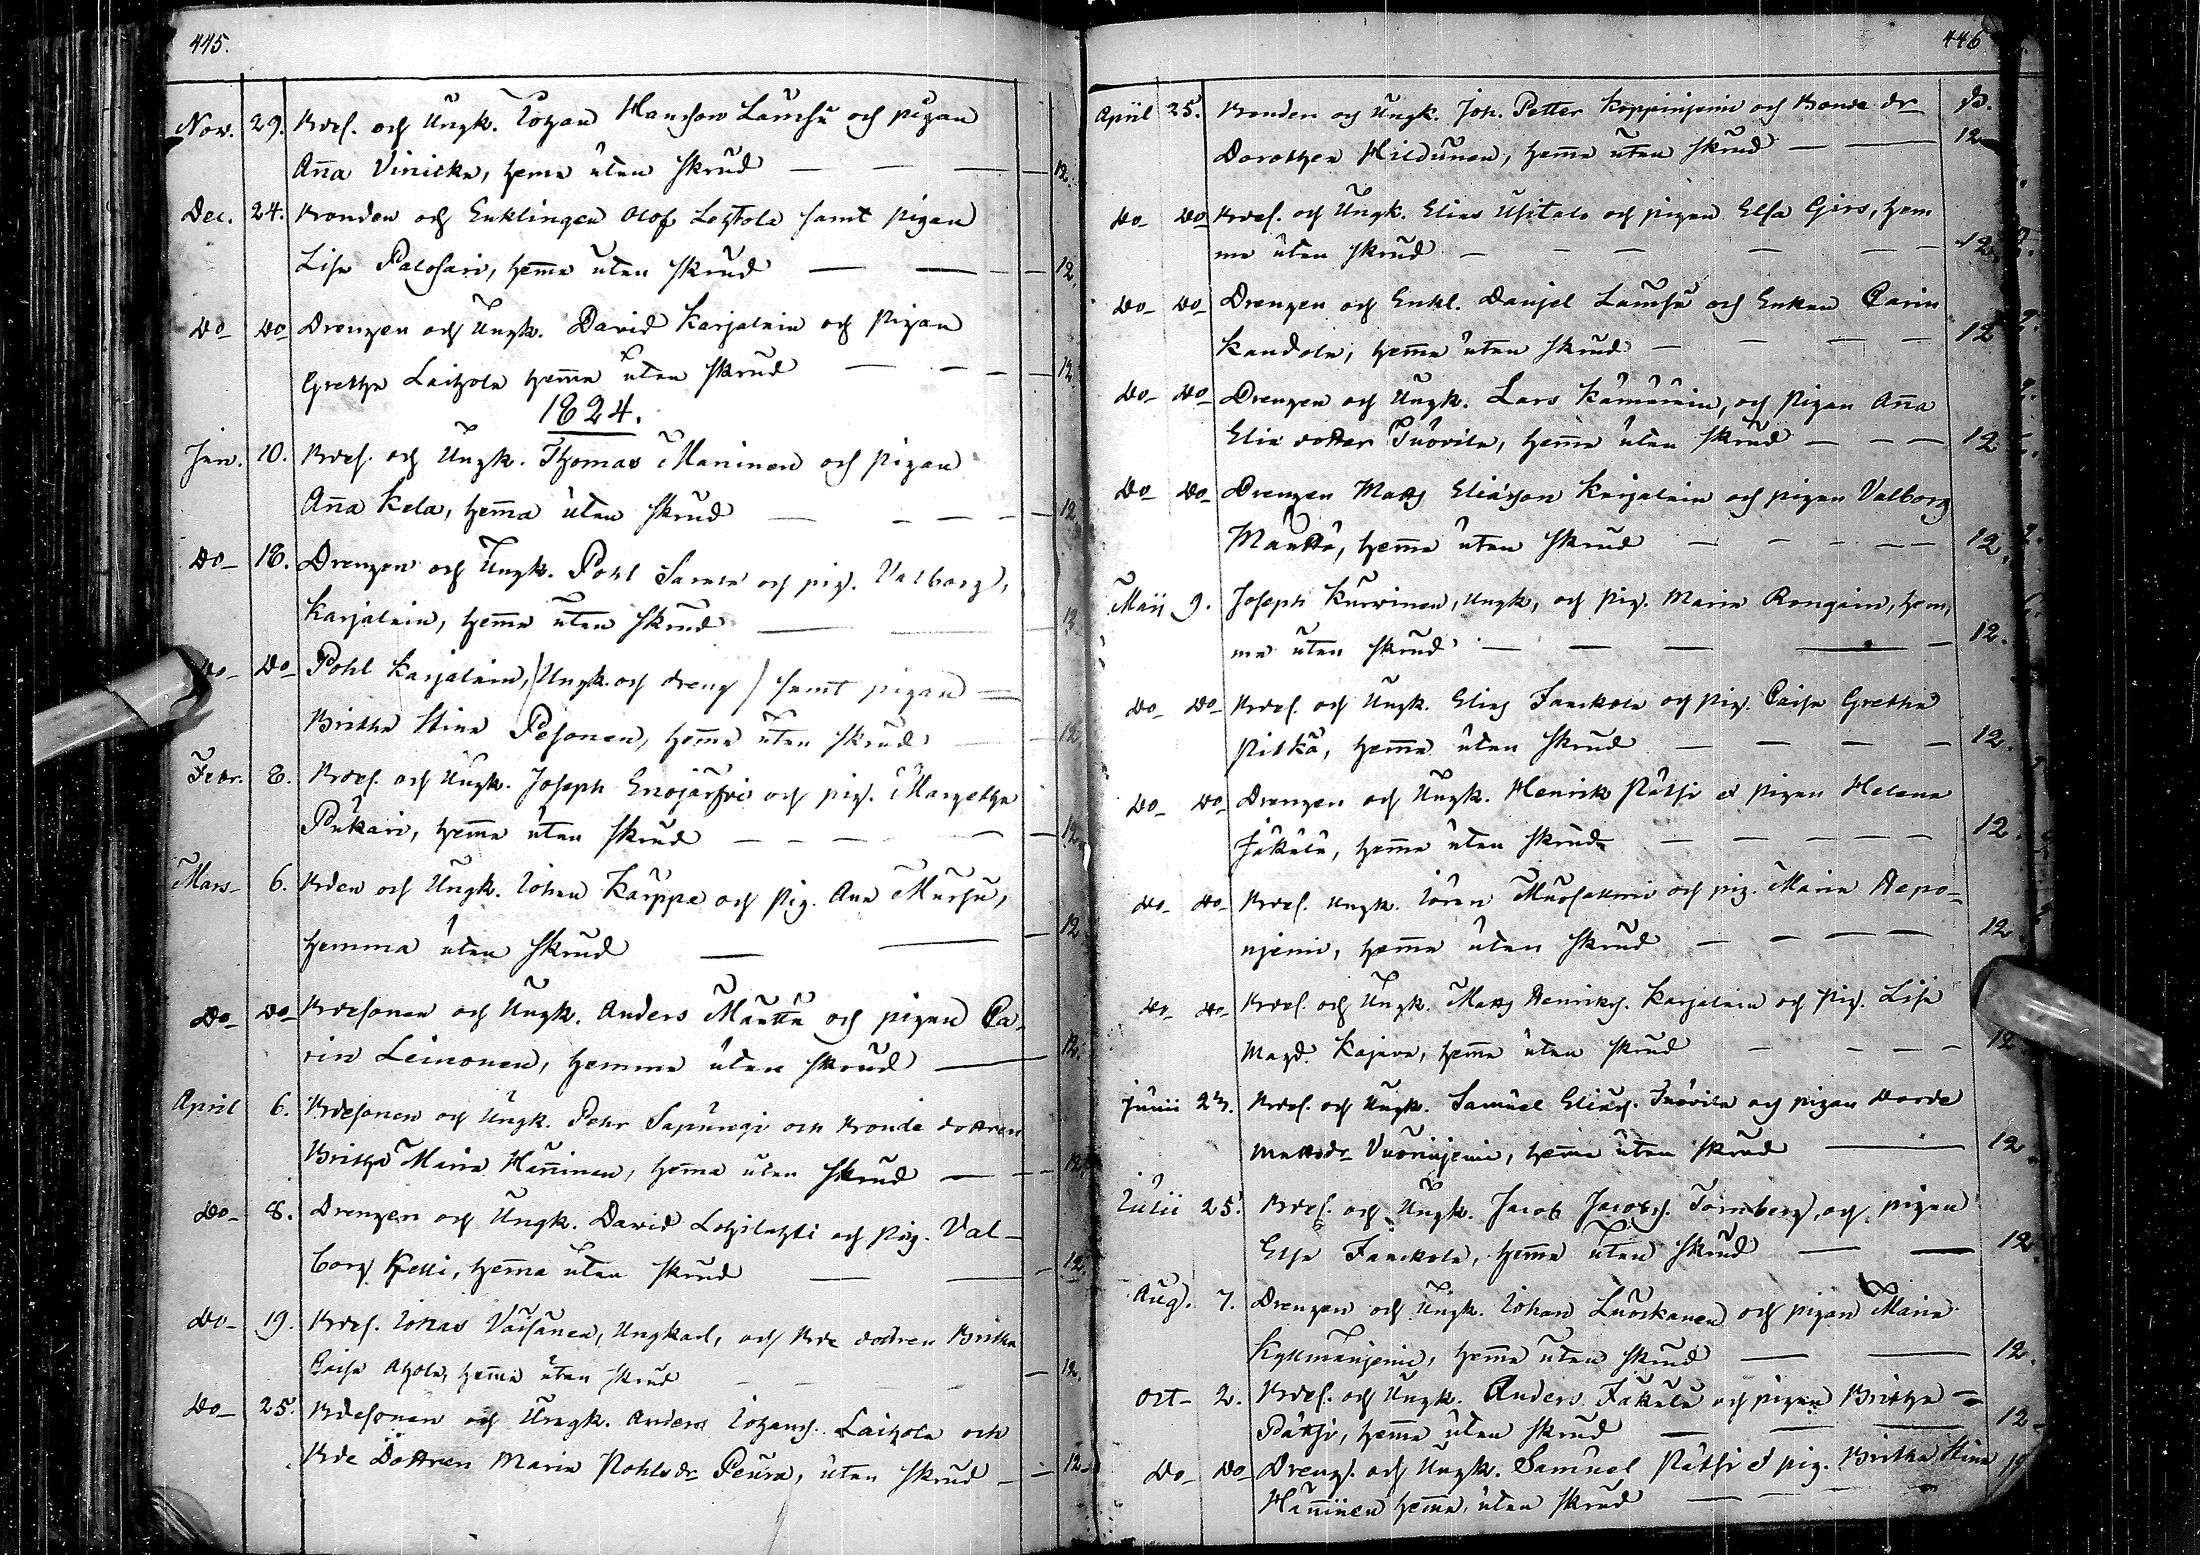 445.
Nov. 29. Bdes. och Ungk. Johan Hansson Lamsu och pigan
Aña Vinicka, hema utan skrud — — — 12.
Dec. 24. Bonden och Enklingen Olof Lehtola samt pigan
Lisa Palosari, hem̄a utan skrud — — — 12.
Do Do Drengen och Ungk. David Karjalain och pigan
Gretha Laihola hem̄a utan skrud — — — 12.
1824.
Jan. 10. Bdes. och Ungk. Thomas Maninen och pigan
Aña Kela, hem̄a utan skrud — — — 12
Do 18. Drengen och Ungk. Pohl och pig. Valborg,
Karjalain, hem̄a utan skrud — — 12
Do Do Pohl Karjalain, /Ungk. och dreng/ samt pigan —
Britha Stina Pesonen, hem̄a utan skrud — 12.
Febr. 8. Bdes. och Ungk. Joseph Enojärfvi och pig. Margetha
Pukari, hem̄a utan skrud — — — 12.
Mars 6. Bden och Ungk. Johan Karppa och pig. Ana Mursu,
hemma utan skrud — — 12
Do Do Bdesonen och Ungk. Anders Mantta och pigan Ca-
rin Leinonen, hemma utan skrud — 12.
April 6. Bdesonen och Ungk. Pehr Sapungi och Bonde dottren
Britha Maria Hañinen, hem̄a utan skrud — — 12.
Do 8. Drengen och Ungk. David Lehtilahti och pig. Val-
borg Kelli, hem̄a utan skrud — — 12.
Do 19. Bdes. Johas Väisänen, Ungkarl, och Bde dottren Britha
Caisa Ahola, hem̄a utan skrud — — 12.
Do 25. Bdesonen och Ungk. Anders Johans. Laihola och
Bde Dottren Maria Pohlsdr Peura, utan skrud — 12.
446
April 25. Bonden og Ungk. Joh. Petter Koppinjemi och Bonde dr ß.
Dorothea Hildunen, hem̄a utan skrud — — 12
Do Do Bdes. och Ungk. Elias Usitalo och pigan Elsa Girs, hem
ma utan skrud — — — — 12.
Do Do Drengen och Enkl. Danjel Lamsu och Enkan Carin
Kandola, hem̄a utan skrud — — — — 12
Do Do Drengen och Ungk. Lars Kämäräin, och pigan Aña
Elia dotter Tuovila, hem̄a utan skrud — — — 12
Do Do Drengen Matts Eliasson Karjalain och pigan Valborg
Mantta, hem̄a utan skrud — — — — 12.
Maii 9. Joseph Kurvinen, Ungk, och pig. Maria Rongain, hem,
ma utan skrud — — — — 12.
Do Do Bdes. och Ungk. Elias Janckola och pig. Caisa Gretha
Pitkä, hem̄a utan skrud — — — — 12.
Do Do Drengen och Ungk. Henrik Pätsi et pigan Helena
Jäkälä, hem̄a utan skrud — — — — 12.
Do Do Bdes. Ungk. Jöran och pig. Maria Aepo-
njemi, hem̄a utan skrud — — — — 12.
Do Do Bdes. och Ungk. Matts Henriks. Karjalain och pig. Lisa
Magd. Kajava, hem̄a utan skrud — — — — 12.
Junii Bdes. och Ungk. Samuel Elias. Tuovila och pigan Dorde
Mattsdr Vuorinjemi, hem̄a utan skrud — 12.
Julii 25. Bdes. och Ungk. Jacob Jacobs. Tornberg, och pigan
Elsa Janckola, hem̄a utan skrud — — 12.
Aug. 7. Drengen och Ungk. Johan Luoskanen och pigan Maria
Kyllmänjemi, hem̄a utan skrud — — 12.
Oct 2. Bdes. och Ungk. Anders Jäkälä och pigan Britha —
Pätsi, hem̄a utan skrud — — — 12
Do Do Drengs. och Ungk. Samuel Pätsi et pig. Britha Stina
Hañinen hem̄a utan skrud — — —